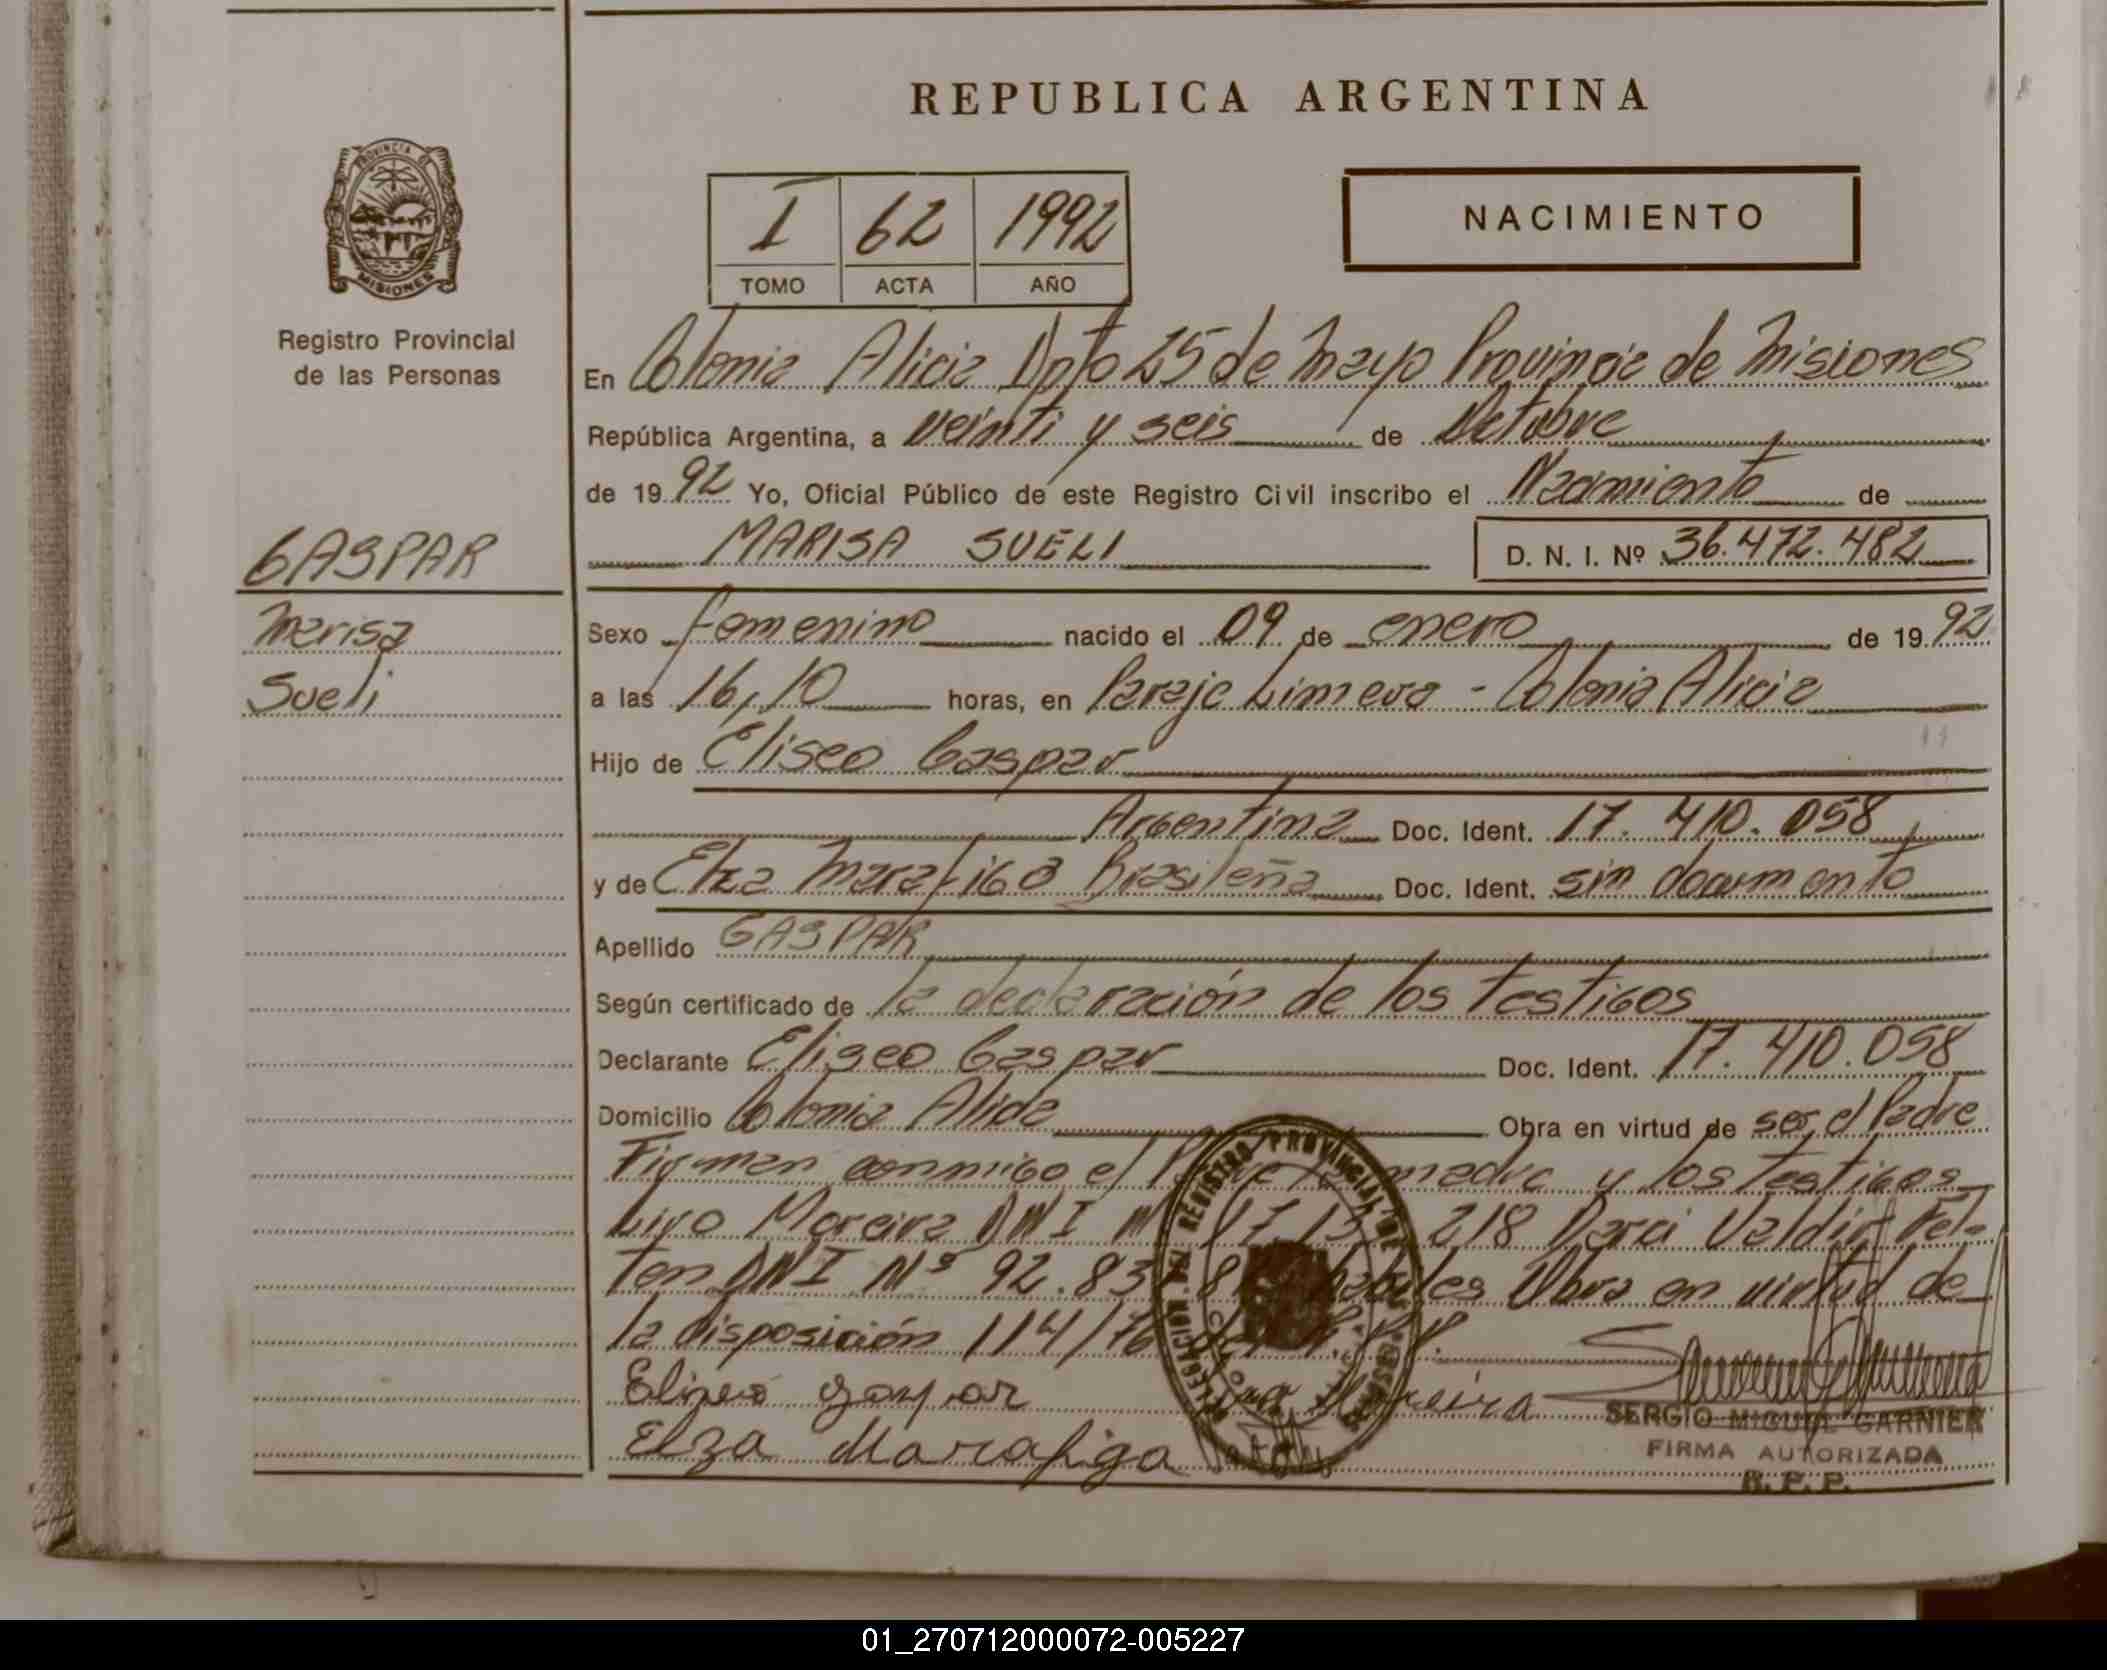 REPUBLICA ARGENTINA
PROVINCIA DE
MISIONES
Registro Provincial
de las Personas
I 62 1992
TOMO ACTA AÑO
NACIMIENTO
En Colonia Alicia Dpto 25 de Mayo Provincia de Misiones
República Argentina, a veinti y seis de Octubre
de 1992 Yo, Oficial Público de este Registro Civil inscribo el Nacimiento de
MARISA SUELI D. N. I. Nº 36.472.482
GASPAR
Marisa
Sueli
Sexo femenino nacido el 09 de enero de 1992
a las 16,10 horas, en Paraje Limera - Colonia Alicia
Hijo de Eliseo Gaspar
Argentina Doc. Ident. 17.410.058
y de Elza Marafiga Brasileña Doc. Ident. sin documento
Apellido GASPAR
Según certificado de la declaración de los testigos
Declarante Eliseo Gaspar Doc. Ident. 17.410.058
Domicilio Colonia Alicia Obra en virtud de ser el Padre
Firman conmigo el madre y los testigos
Liro Moreira DNI 218 Darci Valdir
DNI Nº 92.83 Obra en virtud de
la disposición 114/76
Eliseo gaspar
Elza Marafiga
DELEGACION DEL REGISTRO PROVINCIAL DE
SERGIO MIGUEL GARNIER
FIRMA AUTORIZADA
R. P. P.
01_270712000072-005227